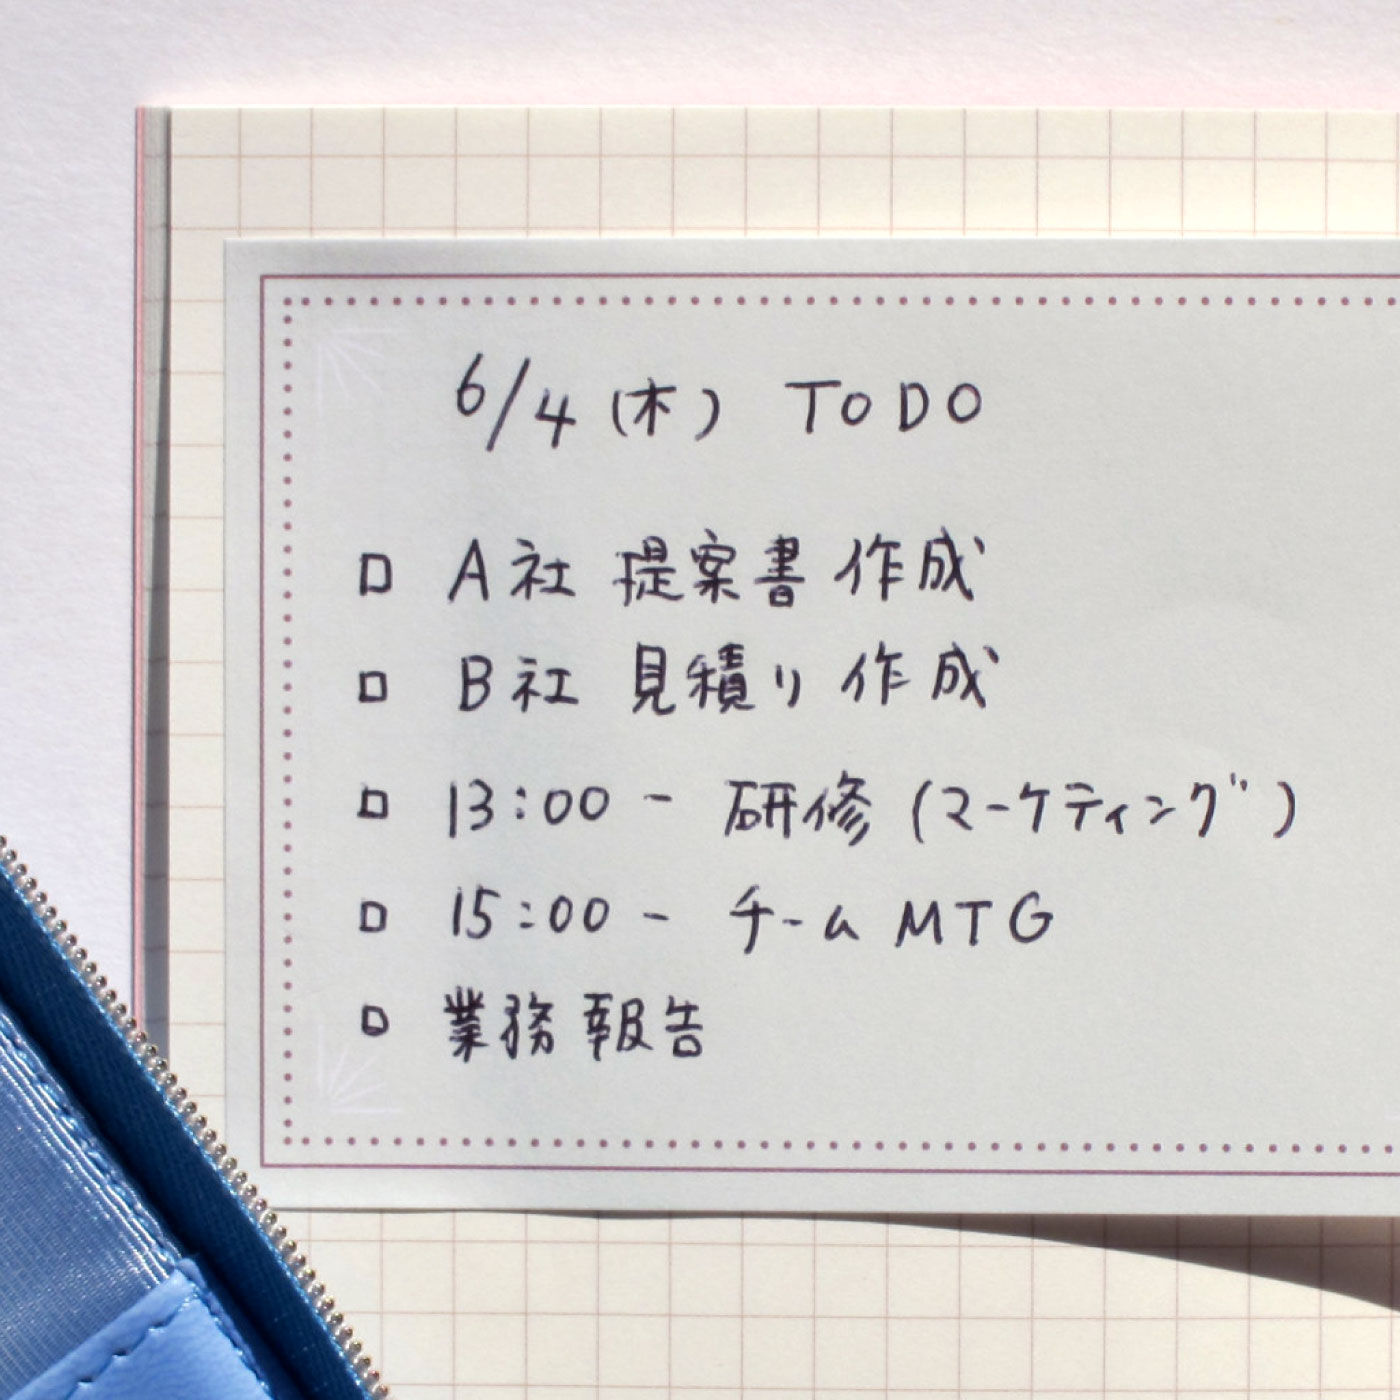 6/4(木) TODO
□ A社 提案書 作成
□ B社 見積り 作成
□ 13:00 - 研修 (マーケティング)
□ 15:00 - チーム MTG
□ 業務 報告